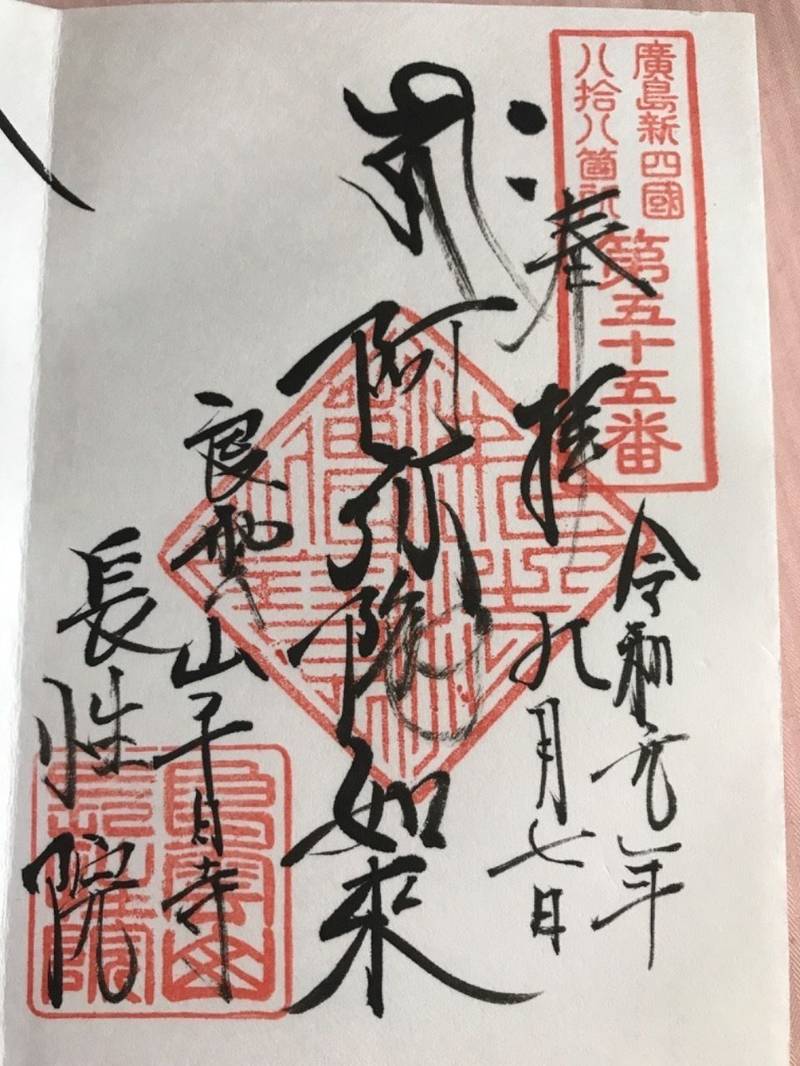 廣島新四國
八拾八箇所
第五十五番
奉拝
令和元年
九月七日
阿弥陀如來
良雲山千日寺
長性院